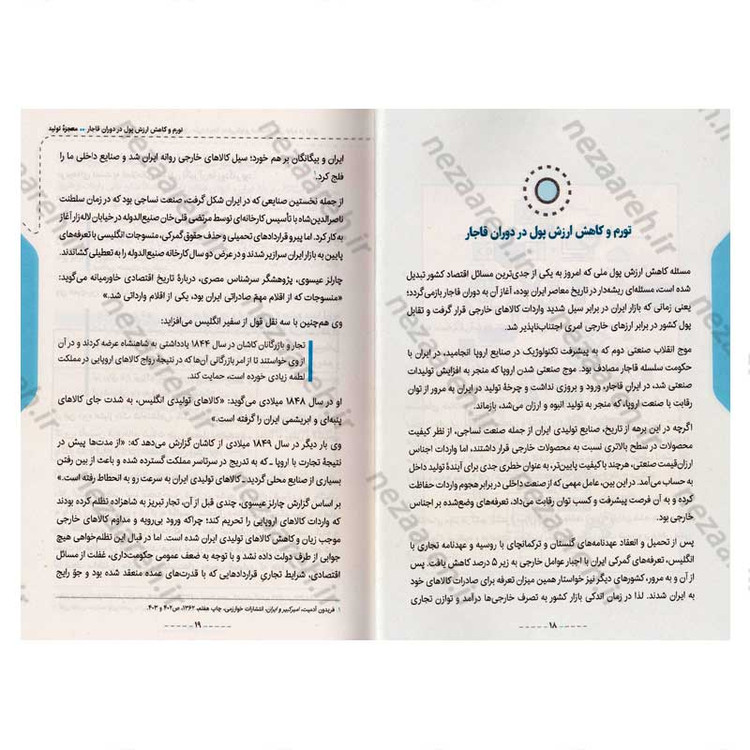 تورم و کاهش ارزش پول در دوران قاجار
مسئله کاهش ارزش پول ملی که امروز به یکی از جدی‌ترین مسائل اقتصاد کشور تبدیل
شده است، مسئله‌ای ریشه‌دار در تاریخ معاصر ایران بوده، آغاز آن به دوران قاجار بازمی‌گردد؛
یعنی زمانی که بازار ایران در برابر سیل شدید واردات کالاهای خارجی قرار گرفت و تقابل
پول کشور در برابر ارزهای خارجی امری اجتناب‌ناپذیر شد.
موج انقلاب صنعتی دوم که به پیشرفت تکنولوژیک در صنایع اروپا انجامید، در ایران با
حکومت سلسله قاجار مصادف بود. موج صنعتی شدن اروپا که منجر به افزایش تولیدات
صنعتی شد، در ایران قاجار، ورود و بروزی نداشت و چرخهٔ تولید در ایران به مرور از توان
رقابت با صنعت اروپا، که منجر به تولید انبوه و ارزان می‌شد، بازماند.
اگرچه در این برهه از تاریخ، صنایع تولیدی ایران از جمله صنعت نساجی، از نظر کیفیت
محصولات در سطح بالاتری نسبت به محصولات خارجی قرار داشتند، اما واردات اجناس
ارزان‌قیمت صنعتی، هرچند با کیفیت پایین‌تر، به‌عنوان خطری جدی برای آیندهٔ تولید داخل
به حساب می‌آمد. در این بین، عامل مهمی که از صنعت داخلی در برابر هجوم واردات حفاظت
کرده و به آن فرصت پیشرفت و کسب توان رقابت می‌داد، تعرفه‌های وضع‌شده بر اجناس
خارجی بود.
پس از تحمیل و انعقاد عهدنامه‌های گلستان و ترکمانچای با روسیه و عهدنامه تجاری با
انگلیس، تعرفه‌های گمرکی ایران با اجبار عوامل خارجی به زیر ۵ درصد کاهش یافت. پس
از آن و به مرور، کشورهای دیگر نیز خواستار همین میزان تعرفه برای صادرات کالاهای خود
به ایران شدند. لذا در زمان اندکی بازار کشور به تصرف خارجی‌ها درآمد و توازن تجاری
۱۸
تورم و کاهش ارزش پول در دوران قاجار •• معجزهٔ تولید
ایران و بیگانگان بر هم خورد؛ سیل کالاهای خارجی روانه ایران شد و صنایع داخلی ما را
فلج کرد.۱
از جمله نخستین صنایعی که در ایران شکل گرفت، صنعت نساجی بود که در زمان سلطنت
ناصرالدین‌شاه با تأسیس کارخانه‌ای توسط مرتضی قلی خان صنیع‌الدوله در خیابان لاله‌زار آغاز
به کار کرد. اما پیرو قراردادهای تحمیلی و حذف حقوق گمرکی، منسوجات انگلیسی با تعرفه‌های
پایین به بازار ایران سرازیر شدند و در عرض دو سال کارخانه صنیع‌الدوله را به تعطیلی کشاندند.
چارلز عیسوی، پژوهشگر سرشناس مصری، دربارهٔ تاریخ اقتصادی خاورمیانه می‌گوید:
«منسوجات که از اقلام مهمّ صادراتی ایران بود، یکی از اقلام وارداتی شد.»
وی هم‌چنین با سه نقل قول از سفیر انگلیس می‌افزاید:
تجار و بازرگانان کاشان در سال ۱۸۴۴ یادداشتی به شاهنشاه عرضه کردند و در آن
از وی خواستند تا از امر بازرگانی آن‌ها که در نتیجهٔ رواج کالاهای اروپایی در مملکت
لطمه زیادی خورده است، حمایت کند.
او در سال ۱۸۴۸ میلادی می‌گوید: «کالاهای تولیدی انگلیس، به شدت جای کالاهای
پنبه‌ای و ابریشمی ایران را گرفته است.»
وی بار دیگر در سال ۱۸۴۹ میلادی از کاشان گزارش می‌دهد که: «از مدت‌ها پیش در
نتیجهٔ تجارت با اروپا ـ که به تدریج در سرتاسر مملکت گسترده شده و باعث از بین رفتن
بسیاری از صنایع محلی گردید ـ کالاهای تولیدی ایران به سرعت رو به انحطاط رفته است.»
بر اساس گزارش چارلز عیسوی، چندی قبل از آن، تجار تبریز به شاهزاده تظلم کرده بودند
که واردات کالاهای اروپایی را تحریم کند؛ چراکه ورود بی‌رویه و مداوم کالاهای خارجی
موجب زیان و کاهش کالاهای تولیدی ایران شده است. اما در قبال این تظلم‌خواهی هیچ
جوابی از طرف دولت داده نشد و با توجه به ضعف عمومی حکومت‌داری، غفلت از مسائل
اقتصادی، شرایط تجاریِ قراردادهایی که با قدرت‌های عمده منعقد شده بود و جوّ رایج
۱. فریدون آدمیت، امیرکبیر و ایران، انتشارات خوارزمی، چاپ هفتم، ۱۳۶۲، ص۴۰۲ و ۴۰۳.
۱۹
nezaareh.ir